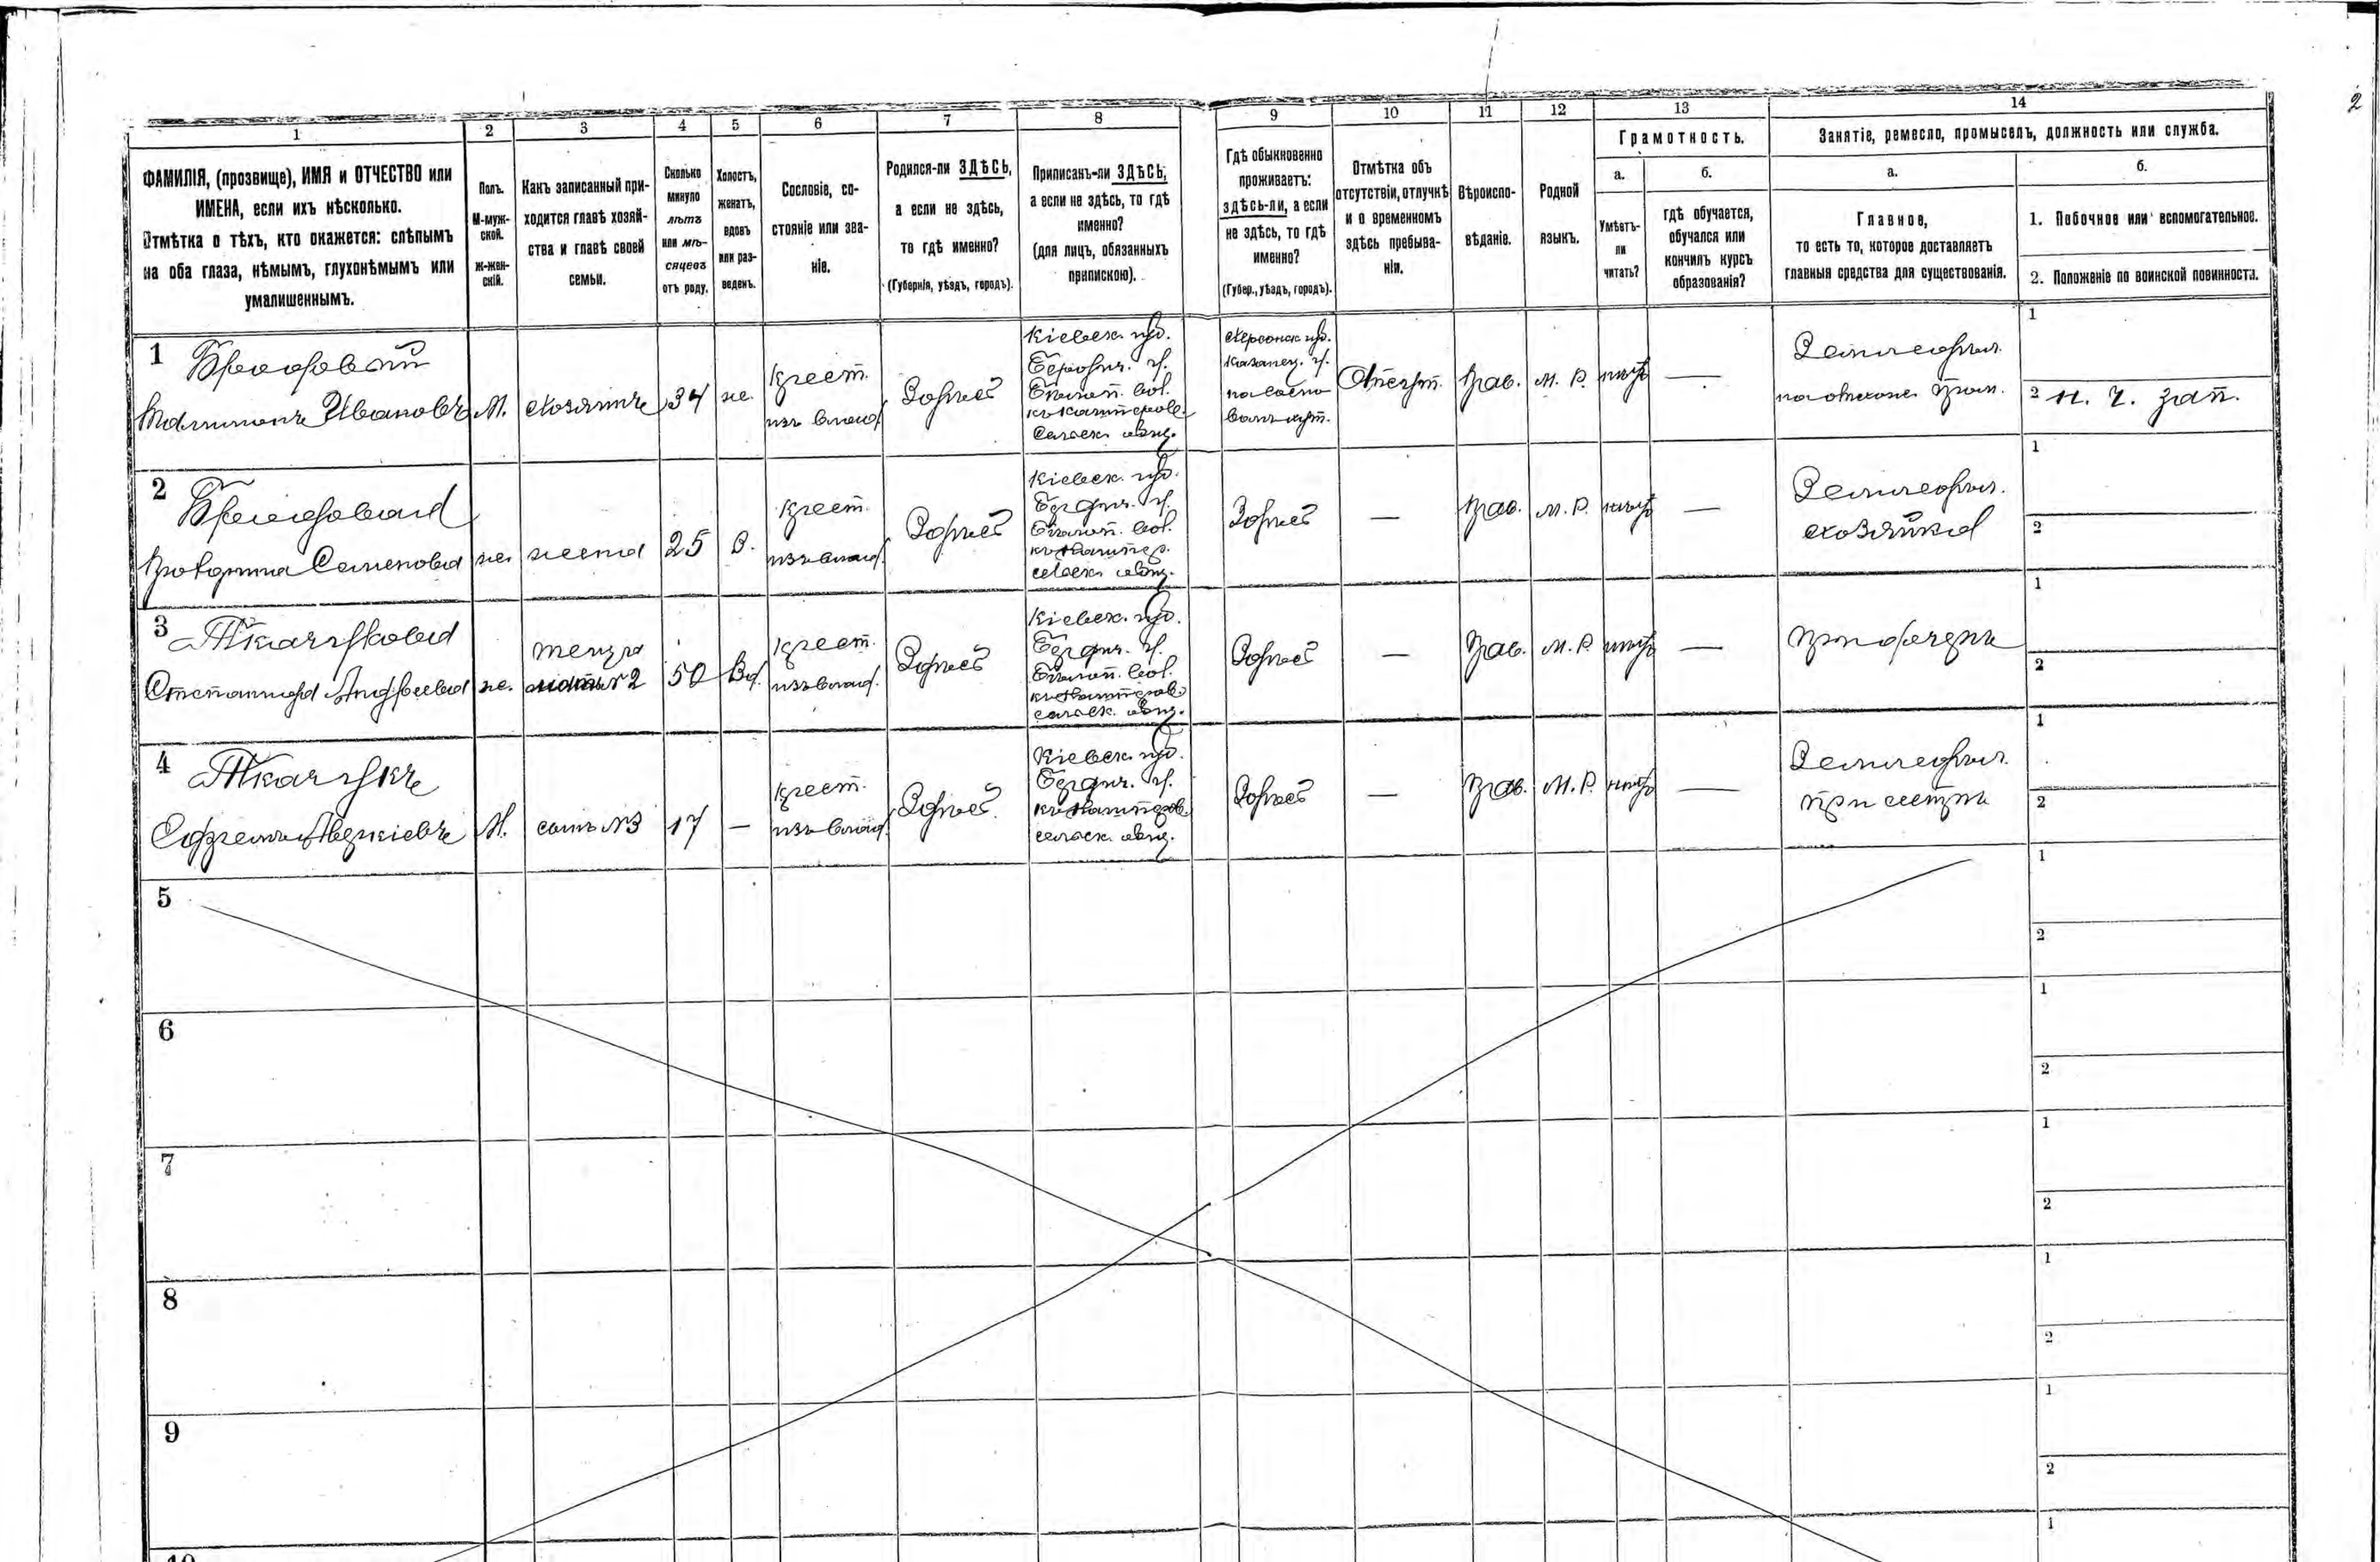 2
1
2
3
4
5
6
7
8
9
10
11
12
13
14
ФАМИЛІЯ, (прозвище), ИМЯ и ОТЧЕСТВО или
ИМЕНА, если ихъ нѣсколько.
Отмѣтка о тѣхъ, кто окажется: слѣпымъ
на оба глаза, нѣмымъ, глухонѣмымъ или
умалишеннымъ.
Полъ.
М-муж-
ской.
Ж-жен-
скій.
Какъ записанный при-
ходится главѣ хозяй-
ства и главѣ своей
семьи.
Сколько
минуло
лѣтъ
или мѣ-
сяцевъ
отъ роду.
Холостъ,
женатъ,
вдовъ
или раз-
веденъ.
Сословіе, со-
стояніе или зва-
ніе.
Родился-ли ЗДѢСЬ,
а если не здѣсь,
то гдѣ именно?
(Губернія, уѣздъ, городъ).
Приписанъ-ли ЗДѢСЬ,
а если не здѣсь, то гдѣ
именно?
(для лицъ, обязанныхъ
припискою).
Гдѣ обыкновенно
проживаетъ:
здѣсь-ли, а если
не здѣсь, то гдѣ
именно?
(Губер., уѣздъ, городъ).
Отмѣтка объ
отсутствіи, отлучкѣ
и о временномъ
здѣсь пребыва-
ніи.
Вѣроиспо-
вѣданіе.
Родной
языкъ.
Грамотность.
а.
Умѣетъ-
ли
читать?
б.
гдѣ обучается,
обучался или
кончилъ курсъ
образованія?
Занятіе, ремесло, промыселъ, должность или служба.
а.
Главное,
то есть то, которое доставляетъ
главныя средства для существованія.
б.
1. Побочное или вспомогательное.
2. Положеніе по воинской повинности.
1
Ивановъ
М.
хозяинъ
34
ж.
крест.
изъ влад.
Здѣсь
Кіевск. губ.
Бердич. у.
вол.
сельск. общ.
Херсонск. губ.
Отсут.
Прав.
М. Р.
нѣтъ
—
Земледѣл.
1
2 н. ч. зап.
2
Семенова
ж.
жена
25
З.
крест.
изъ влад.
Здѣсь
Кіевск. губ.
Бердич. у.
вол.
сельск. общ.
Здѣсь
—
Прав.
М. Р.
нѣтъ
—
Земледѣл.
хозяйка
1
2
3 Ткачукова
Степанида Андреева
ж.
теща
№ 2
50
Вд.
крест.
изъ влад.
Здѣсь
Кіевск. губ.
Бердич. у.
вол.
сельск. общ.
Здѣсь
—
Прав.
М. Р.
нѣтъ
—
при дочери
1
2
4 Ткачукъ
М.
сынъ № 3
17
—
крест.
изъ влад.
Здѣсь
Кіевск. губ.
Бердич. у.
сельск. общ.
Здѣсь
—
Прав.
М. Р.
нѣтъ
—
Земледѣл.
при сестрѣ
1
2
5
1
2
6
1
2
7
1
2
8
1
2
9
1
2
10
1